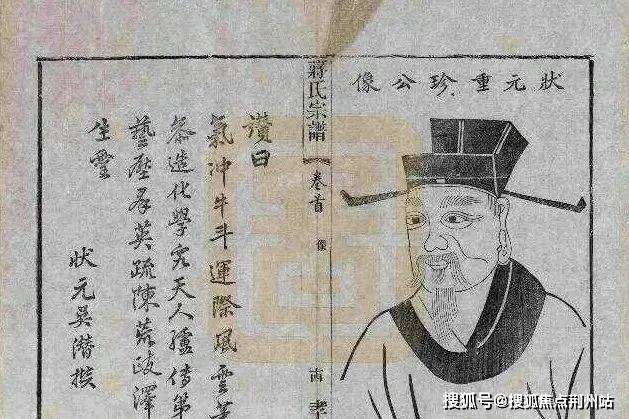 狀元重珍公像
蔣氏宗譜
卷首
像
讚曰
氣沖牛斗運際風雲
叅造化學究天人臚傳第
藝壓群英疏陳荒政澤
生靈
狀元吳潛撰
搜狐号@搜狐焦点荆州站